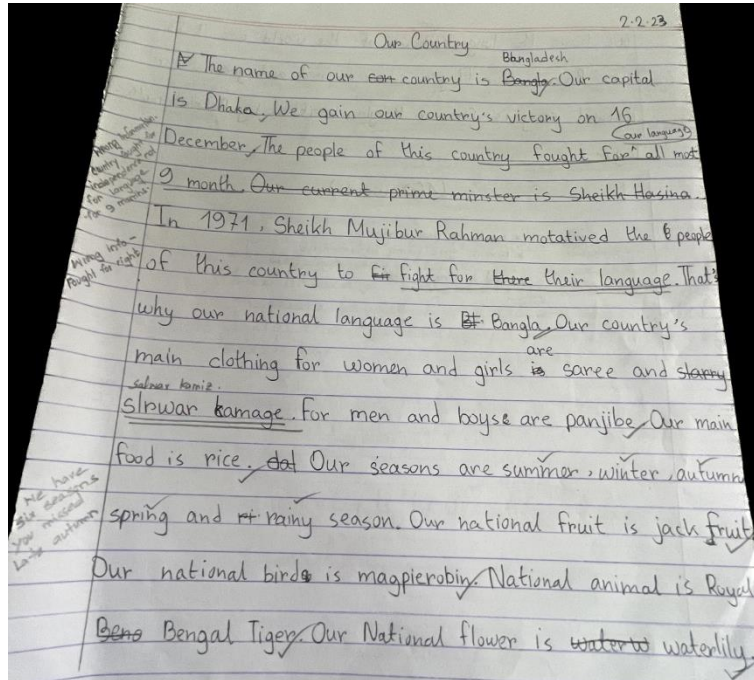 2-2-23
Our Country
Bbangladesh
A The name of our country is Bangla. Our capital
is Dhaka, We gain our country's victory on 16
our language
December, The people of this country fought for ^ all mot
9 month. Our current prime minster is Sheikh Hasina.
In 1971, Sheikh Mujibur Rahman motatived the 6 people
of this country to fight for there their language. That's
why our national language is Bangla, Our country's
are
main clothing for women and girls is saree and starry
salwar kamiz.
slrwar kamage. For men and boyse are panjibe, Our main
food is rice. dal Our seasons are summer, winter, autumn
spring and rainy season. Our national fruit is jack fruit
Our national birds is magpierobin, National animal is Royal
Beno Bengal Tiger. Our National flower is waterlily.
Wrong information.
Country fought for
independence not
for language
for 9 months.
Wrong info-
Fought for right
We have
six seasons
you missed
Late autumn